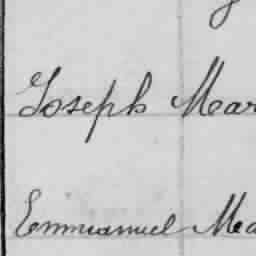 Joseph Mar
Emmanuel Mea